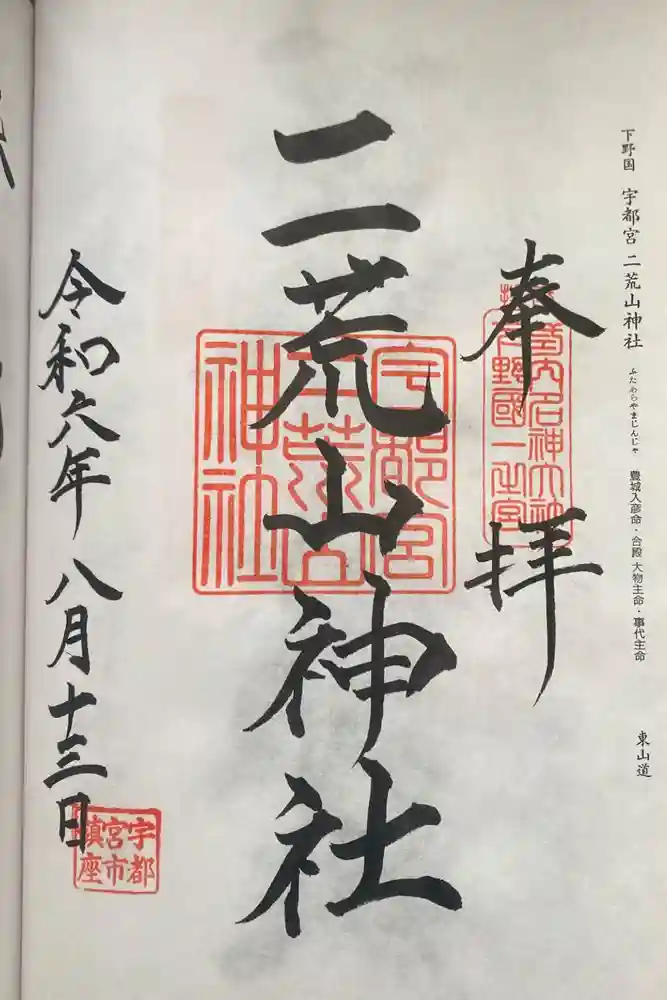 下野国 宇都宮 二荒山神社 ふたあらやまじんじゃ 豊城入彦命・合殿 大物主命・事代主命 東山道
奉拝
二荒山神社
宇都宮
二荒山
神社
令和六年 八月十三日
宇都
宮市
鎮座